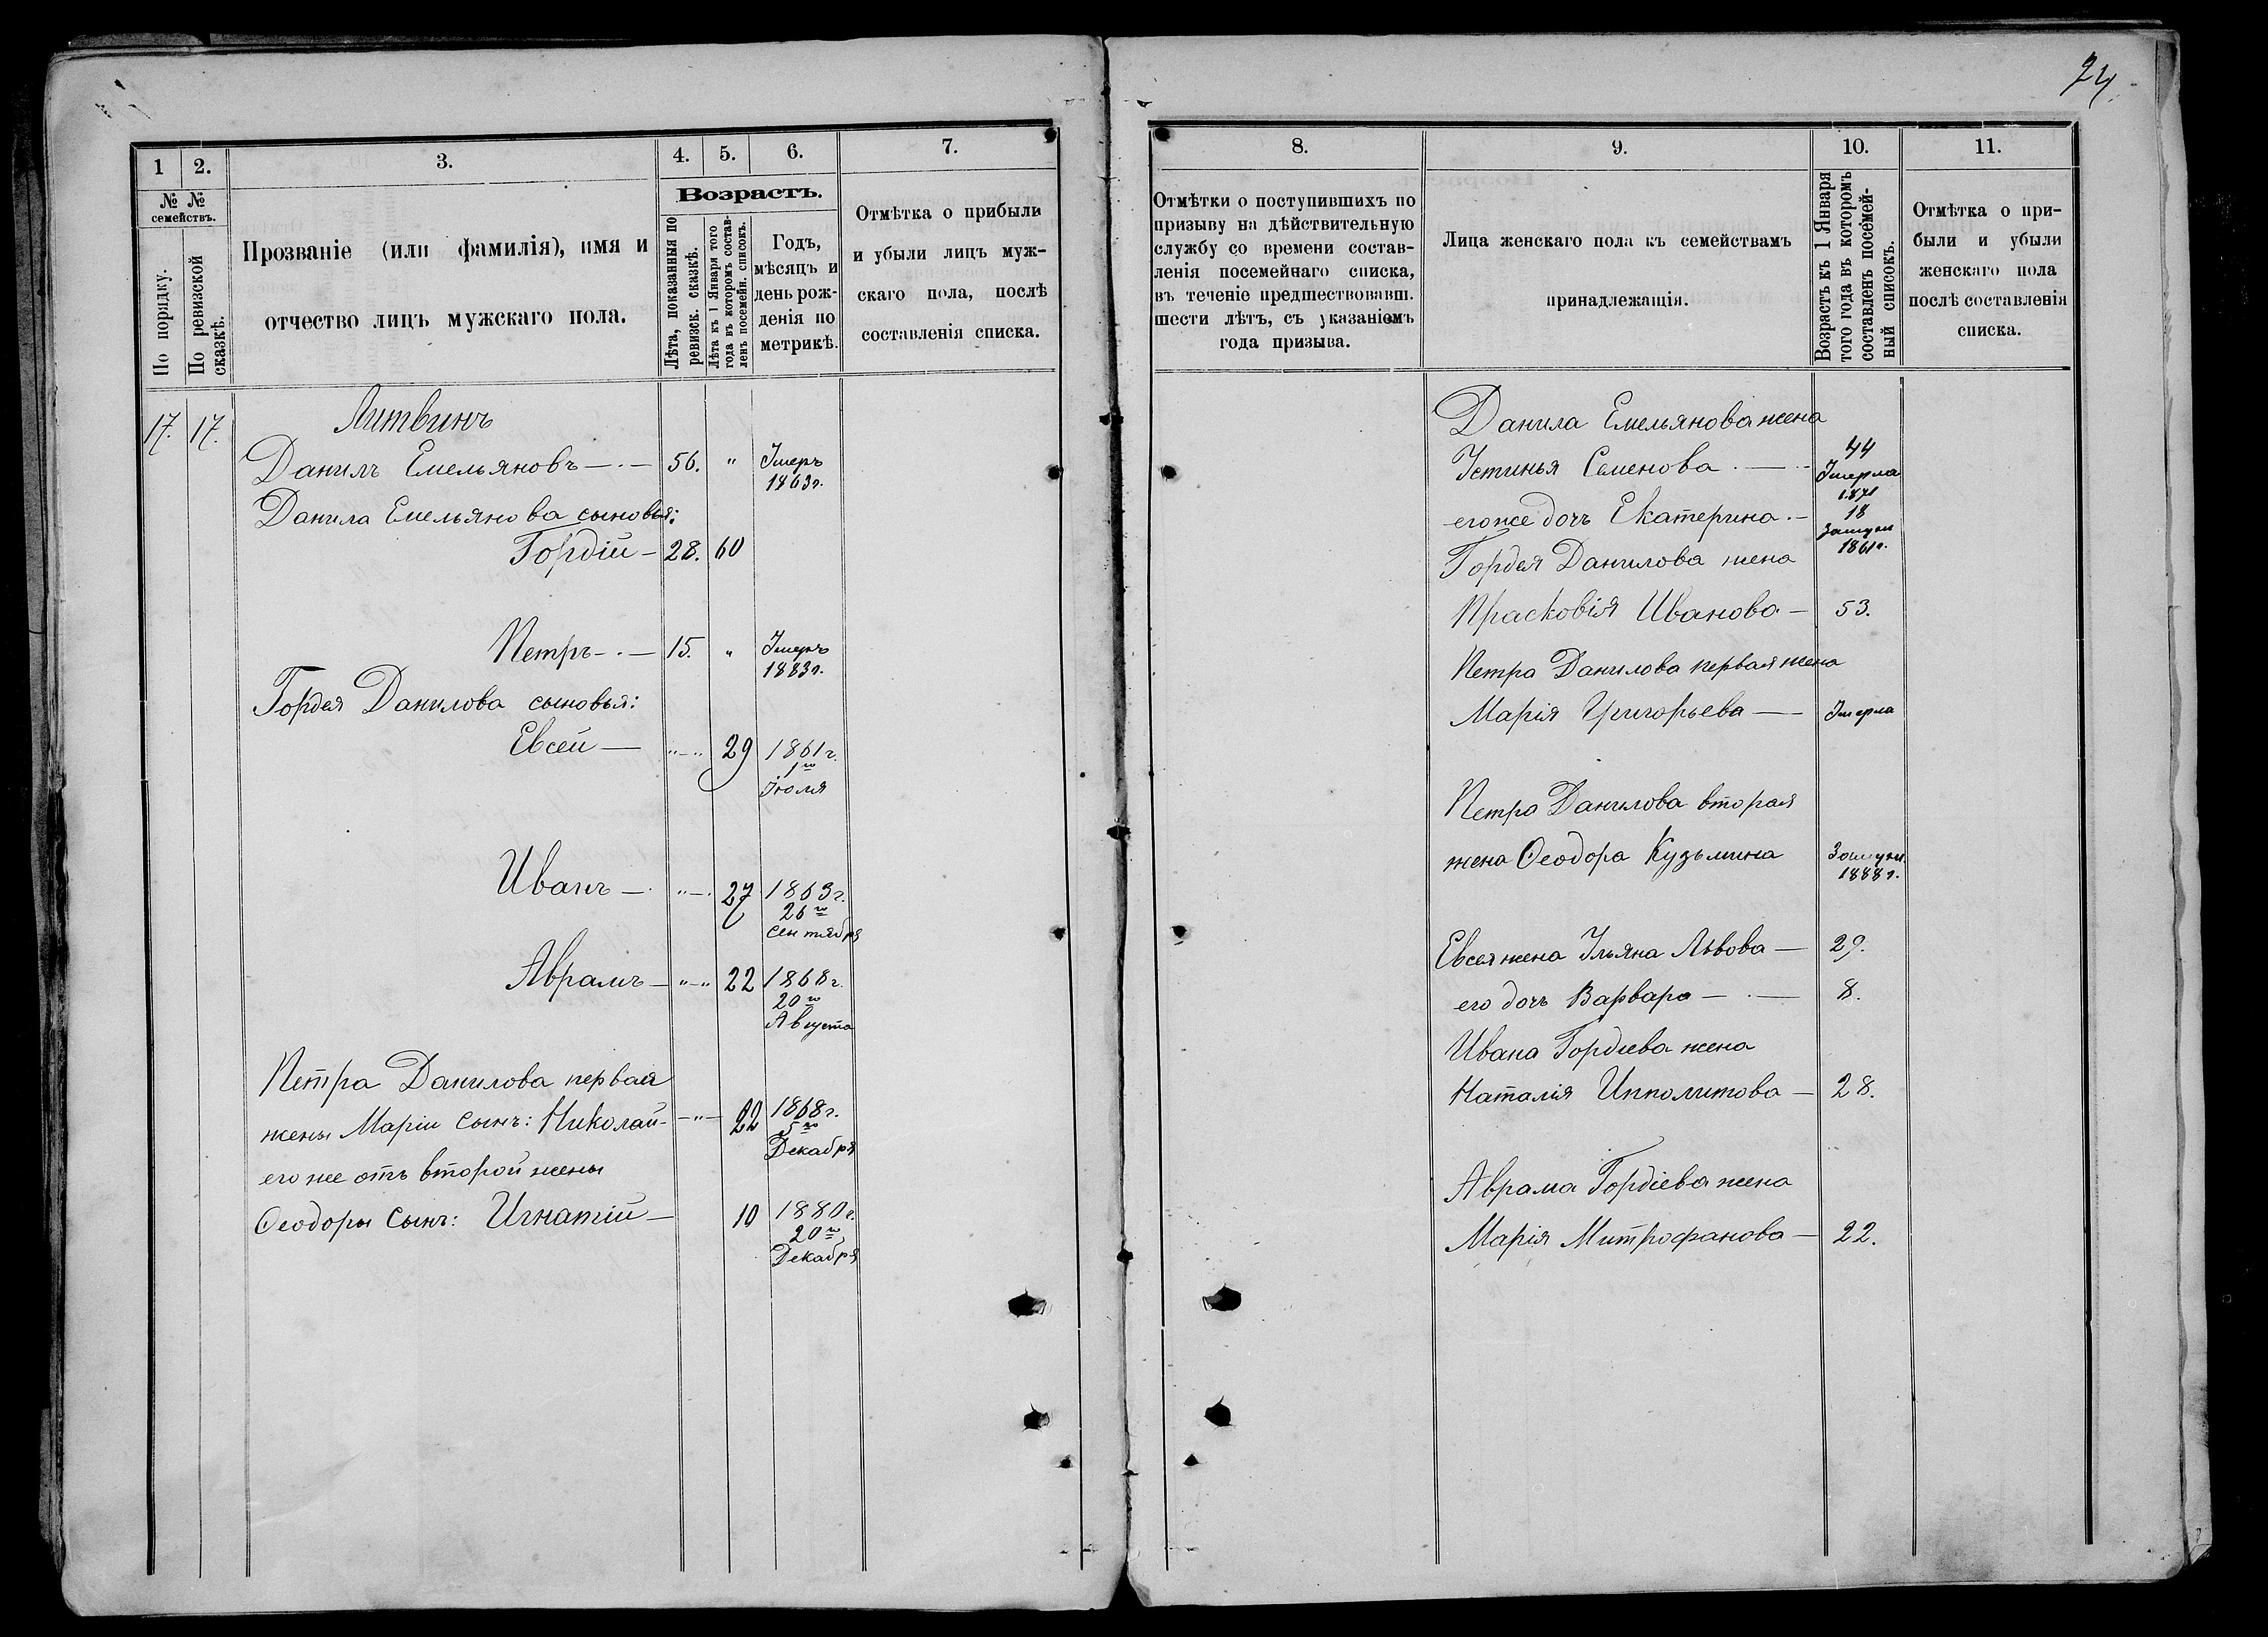 24.
1
2.
3.
4.
5.
6.
7.
№ №
семействъ.
По порядку.
По ревизской
сказкѣ.
Прозваніе (или фамилія), имя и
отчество лицъ мужскаго пола.
Возрастъ.
Лѣта, показанныя по
ревизск. сказкѣ.
Лѣта къ 1 Января того
года въ которомъ состав-
ленъ посемейн. списокъ.
Годъ,
мѣсяцъ и
день рож-
денія по
метрикѣ.
Отмѣтка о прибыли
и убыли лицъ муж-
скаго пола, послѣ
составленія списка.
17. 17. Литвинъ
Данилъ Емельяновъ — 56. " Умеръ
1863г.
Данила Емельянова сыновья:
Гордій — 28. 60
Петръ — 15. " Умеръ
1883г.
Гордея Данилова сыновья:
Евсей — "—" 29 1861г.
1го
Іюля
Иванъ — "—" 27 1863г.
26го
Сентября
Аврамъ — "—" 22 1868г.
20го
Августа
Петра Данилова первая
жены Маріи сынъ: Николай — " — 22 1868г.
5го
Декабря
его же отъ второй жены
Ѳеодоры сынъ: Игнатій — 10 1880г.
20го
Декабря
8.
9.
10.
11.
Отмѣтки о поступившихъ по
призыву на дѣйствительную
службу со времени состав-
ленія посемейнаго списка,
въ теченіе предшествовавш.
шести лѣтъ, съ указаніемъ
года призыва.
Лица женскаго пола къ семействамъ
принадлежащія.
Возрастъ къ 1 Января
того года въ которомъ
составленъ посемей-
ный списокъ.
Отмѣтка о при-
были и убыли
женскаго пола
послѣ составленія
списка.
Данила Емельянова жена
Устинья Семенова — 44
Умерла
1871
его же дочь Екатерина — 18
Замуж
1861г.
Гордея Данилова жена
Прасковія Иванова — 53.
Петра Данилова первая жена
Марія Григорьева — Умерла
Петра Данилова вторая
жена Ѳеодора Кузьмина Замуж.
1888г.
Евсея жена Ульяна Львова — 29.
его дочь Варвара — 8.
Ивана Гордіева жена
Наталія Ипполитова — 28.
Аврама Гордіева жена
Марія Митрофанова — 22.